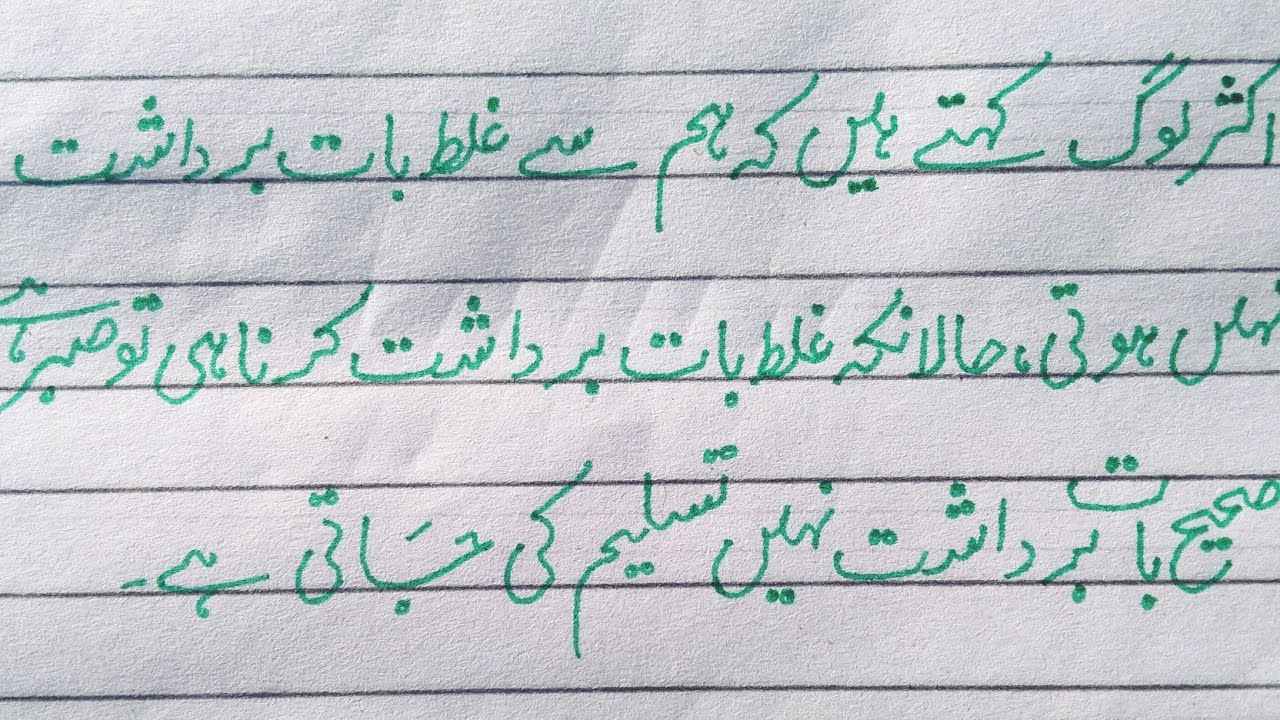 اکثر لوگ کہتے ہیں کہ ہم سے غلط بات برداشت
نہیں ہوتی، حالانکہ غلط بات برداشت کرنا ہی تو صبر ہے
صحیح بات برداشت نہیں تسلیم کی جاتی ہے۔